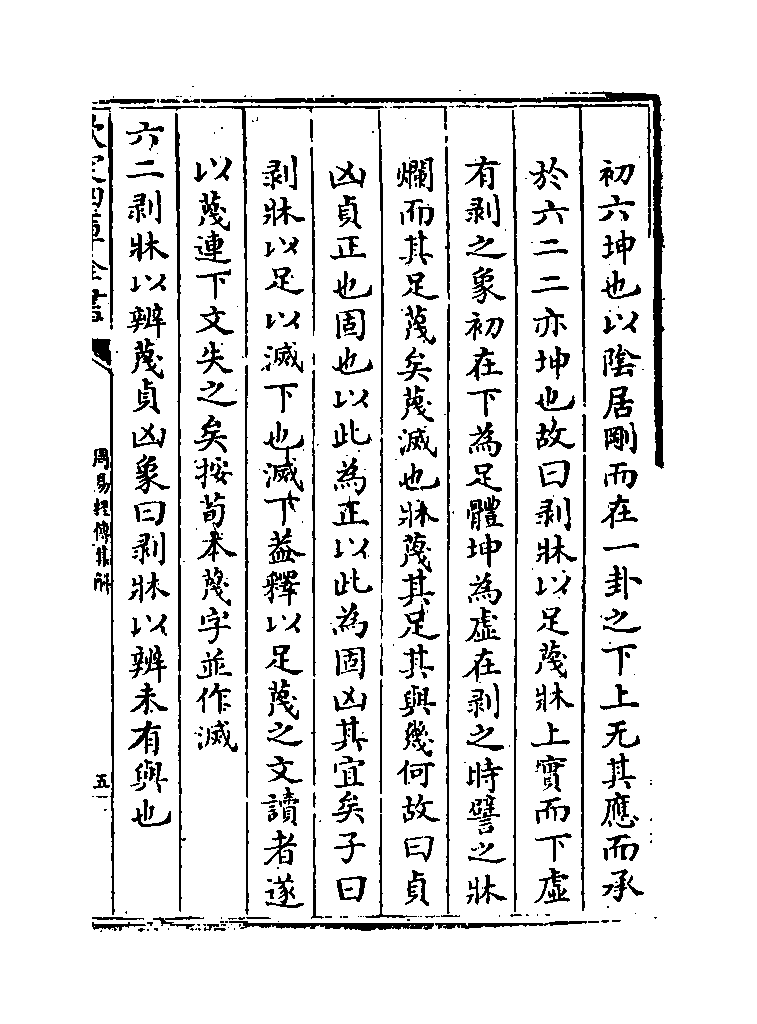 初六坤也以陰居剛而在一卦之下上无其應而承
於六二二亦坤也故曰剥牀以足蔑牀上實而下虛
有剥之象初在下為足體坤為虛在剥之時譬之牀
爛而其足蔑矣蔑滅也牀蔑其足其與幾何故曰貞
凶貞正也固也以此為正以此為固凶其宜矣子曰
剥牀以足以滅下也滅下葢釋以足蔑之文讀者遂
以蔑連下文失之矣按荀本蔑字並作滅
六二剥牀以辨蔑貞凶象曰剥牀以辨未有與也
欽定四庫全書
周易經傳集解
五